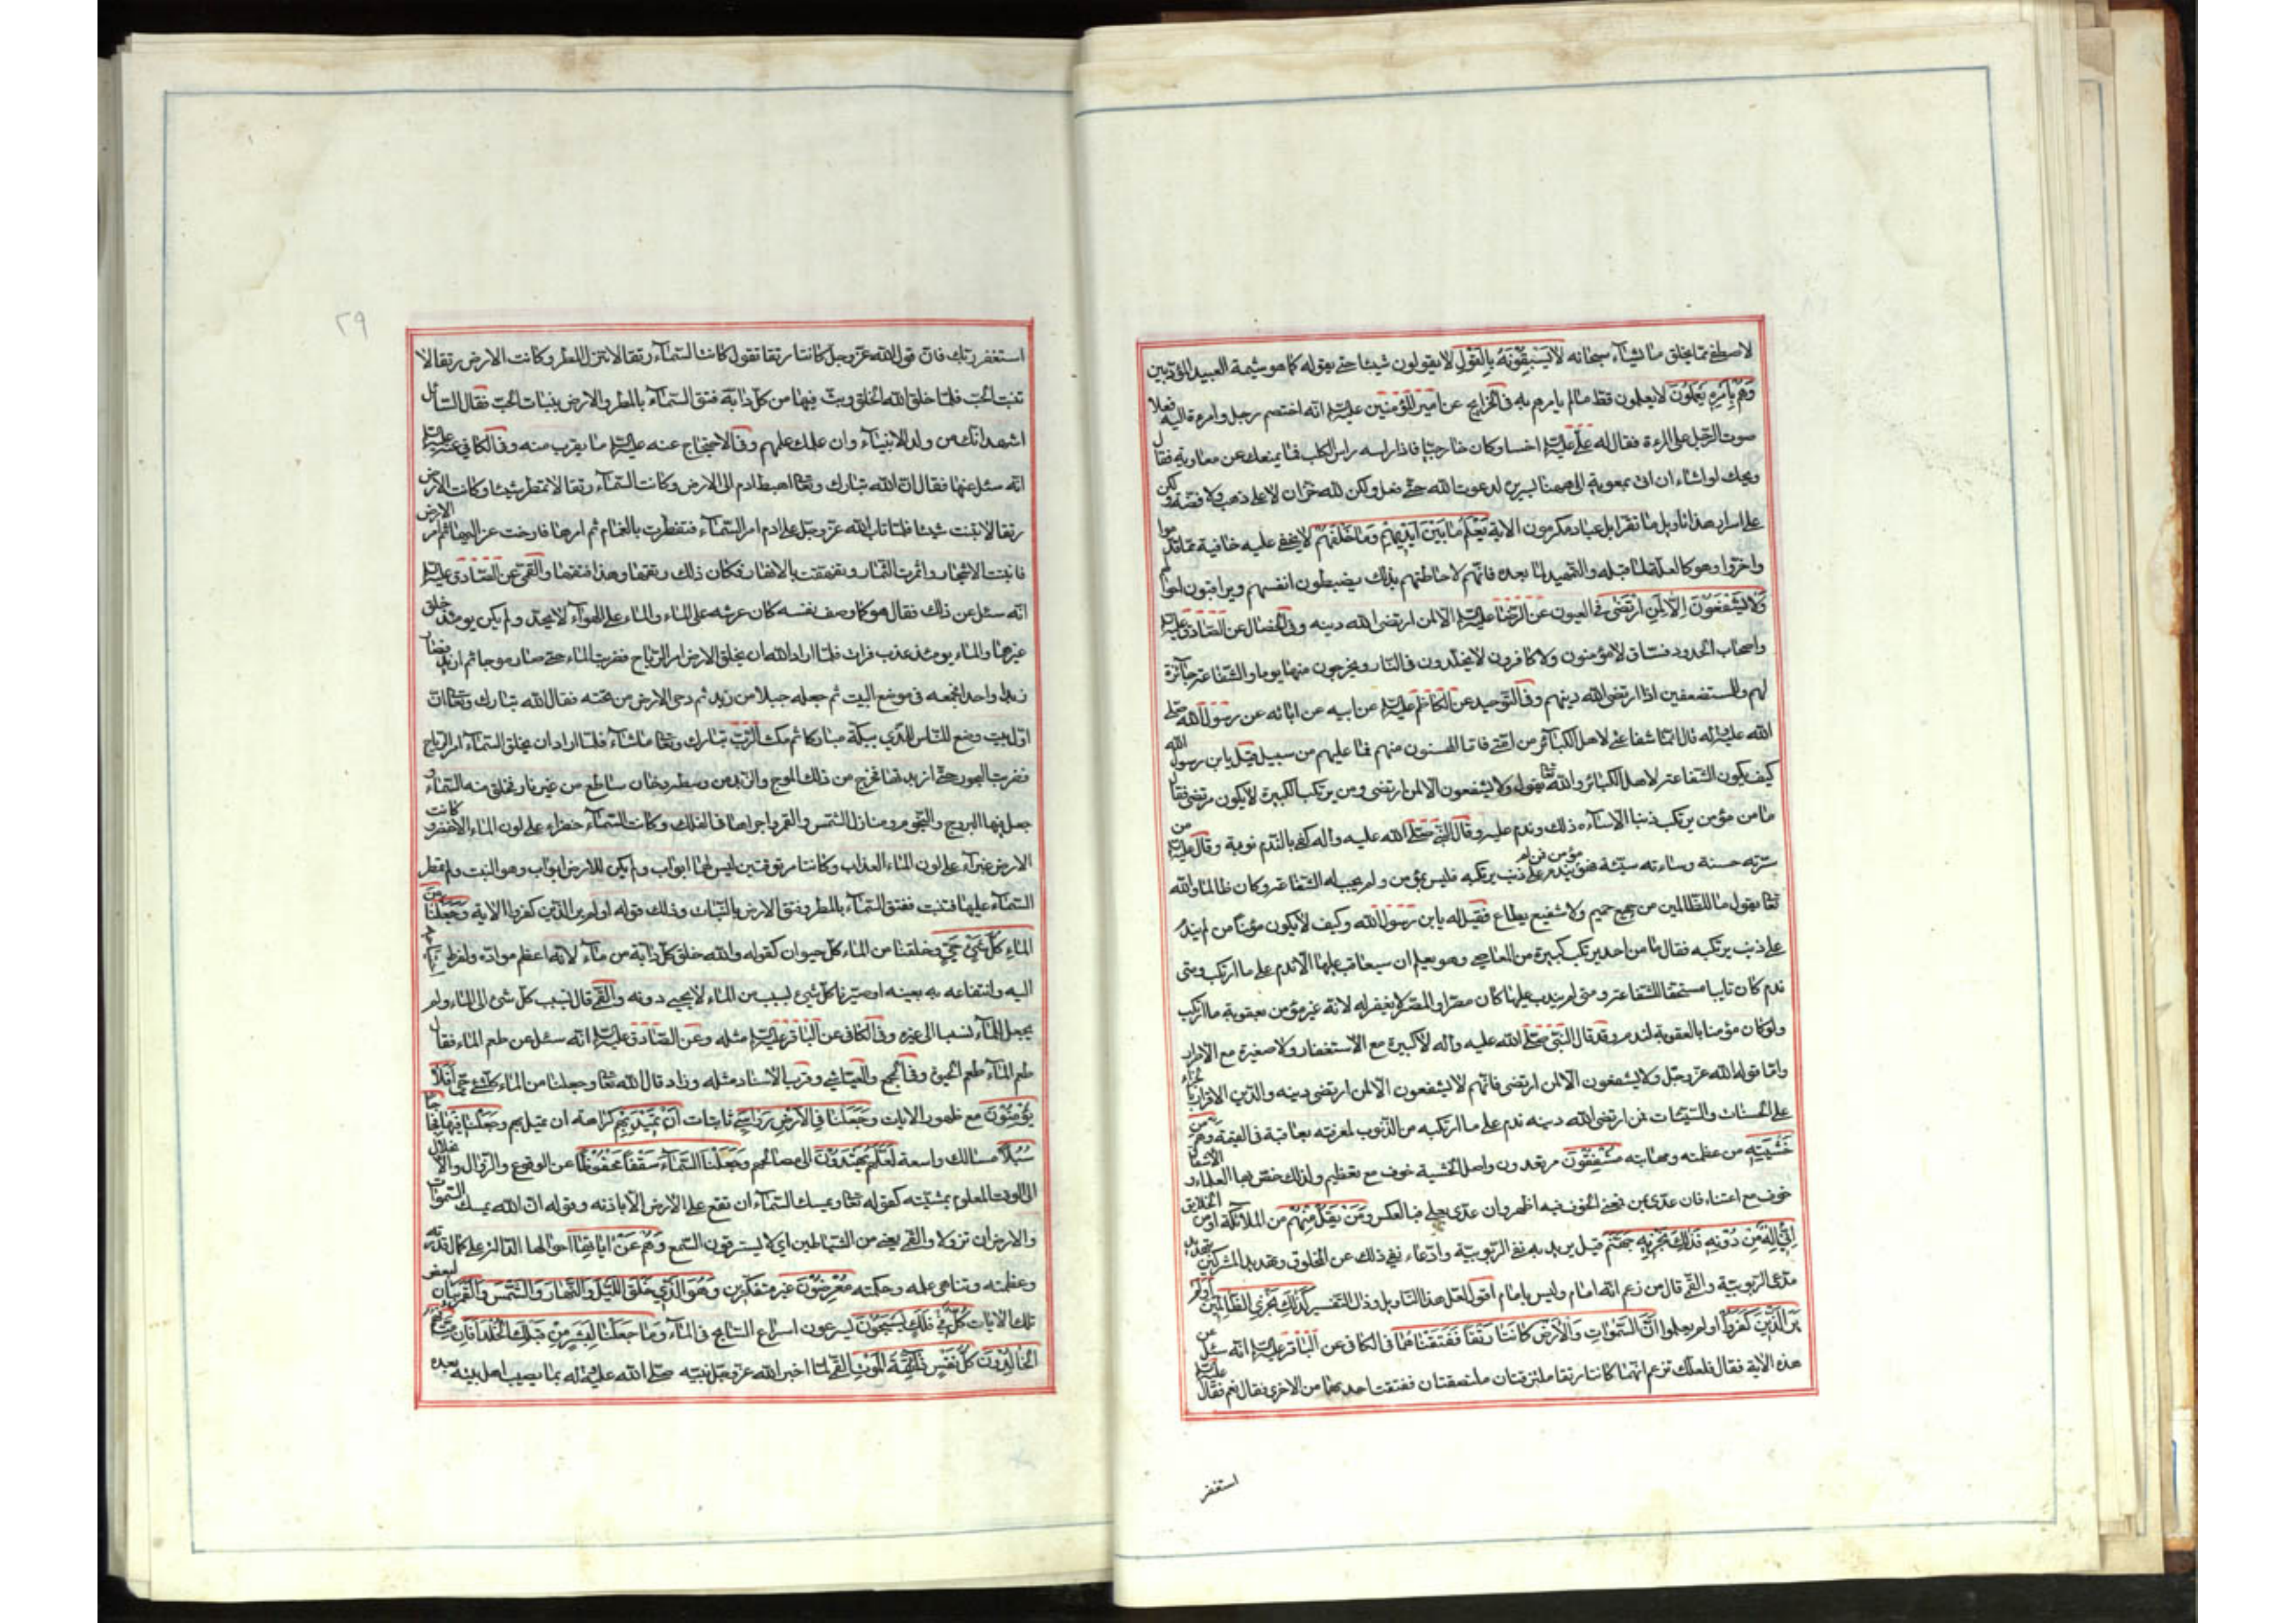 لاصطفى مما يخلق ما يشاء سبحانه لا يَسْبِقُونَهُ بِالْقَوْلِ لا يقولون شيئا حتى يقوله كما هو شيمة العبيد المؤدبين
وَهُمْ بِأَمْرِهِ يَعْمَلُونَ لا يعملون قط ما لم يامرهم به في الخرايج عن امير المؤمنين عليه السلام انه اختصم رجل وامرءة اليه فعلا
صوت الرجل على المرءة فقال له علي عليه السلام اخسا وكان خارجيا فاذا راسه راس الكلب فما يمنعك عن معاوية فقال
ويحك لو اشاء ان اتى بمعوية الى ههنا لسريره لدعوت الله حتى فعل ولكن لله خزان لا على ذهب ولا فضة ولكن
على اسرار هذا تاويل ما تقرا بل عباد مكرمون الاية يَعْلَمُ مَا بَيْنَ أَيْدِيهِمْ وَمَا خَلْفَهُمْ لا يخفى عليه خافية مما قدموا
واخروا وهو كالعلة لما قبله والتمهيد لما بعده فانهم لاحاطتهم بذلك يضبطون انفسهم ويراقبون احوالهم
وَلا يَشْفَعُونَ إِلَّا لِمَنِ ارْتَضى في العيون عن الرضا عليه السلام الا لمن ارتضى الله دينه وفي الخصال عن الصادق عليه السلام
واصحاب الحدود فساق لا مؤمنون ولا كافرون لا يخلدون في النار ويخرجون منها يوما والشفاعة جائزة
لهم وللمستضعفين اذا ارتضى الله دينهم وفي التوحيد عن الكاظم عليه السلام عن ابيه عن ابائه عن رسول الله صلى
الله عليه واله قال انما شفاعتي لاهل الكبائر من امتي فاما المحسنون منهم فما عليهم من سبيل قيل يابن رسول الله
كيف يكون الشفاعة لاهل الكبائر والله تعالى يقول ولا يشفعون الا لمن ارتضى ومن يرتكب الكبيرة لا يكون مرتضى فقال
ما من مؤمن يرتكب ذنبا الا ساءه ذلك وندم عليه وقال النبي صلى الله عليه واله كفى بالندم توبة وقال عليه السلام من
سرته حسنة وساءته سيئة فهو مؤمن فمن لم يندم على ذنب يرتكبه فليس بمؤمن ولم يجب له الشفاعة وكان ظالما والله
تعالى يقول ما للظالمين من حميم ولا شفيع يطاع فقيل له يابن رسول الله وكيف لا يكون مؤمنا من لم يندم
على ذنب يرتكبه فقال ما من احد يرتكب كبيرة من المعاصي وهو يعلم ان سيعاقب عليها الا ندم على ما ارتكب ومتى
ندم كان تايبا مستحقا للشفاعة ومتى لم يندم عليها كان مصرا والمصر لا يغفر له لانه غير مؤمن بعقوبة ما ارتكب
ولو كان مؤمنا بالعقوبة لندم وقد قال النبي صلى الله عليه واله لا كبيرة مع الاستغفار ولا صغيرة مع الاصرار
واما قول الله عز وجل ولا يشفعون الا لمن ارتضى فانهم لا يشفعون الا لمن ارتضى دينه والدين الاقرار بالجزاء
على الحسنات والسيئات فمن ارتضى الله دينه ندم على ما ارتكبه من الذنوب لمعرفته بعاقبته في القيمة وَهُمْ مِنْ
خَشْيَتِهِ من عظمته ومهابته مُشْفِقُونَ مرتعدون واصل الخشية خوف مع تعظيم ولذلك خص بها العلماء والاشفاق
خوف مع اعتناء فان عدى بمن فمعنى الخوف فيه اظهر وان عدى بعلى فبالعكس وَمَنْ يَقُلْ مِنْهُمْ من الملائكة او من الخلايق
إِنِّي إِلهٌ مِنْ دُونِهِ فَذلِكَ نَجْزِيهِ جَهَنَّمَ قيل يريد به نفى الربوبية وادعاء نفى ذلك عن المخلوق وتهديد المشركين بتهديد
مدعى الربوبية والقمى قال من زعم انه امام وليس بامام اقول لعل هذا التاويل وذاك التفسير كَذلِكَ نَجْزِي الظَّالِمِينَ أَوَلَمْ
يَرَ الَّذِينَ كَفَرُوا او لم يعلموا أَنَّ السَّمواتِ وَالْأَرْضَ كانَتا رَتْقاً فَفَتَقْناهُما في الكافي عن الباقر عليه السلام انه سئل عن
هذه الاية فقال فلعلك تزعم انهما كانتا رتقا ملتزقتان ملتصقتان ففتقت احديهما من الاخرى فقال نعم فقال عليه السلام
استغفر
٢٩
استغفر ربك فان قول الله عز وجل كانتا رتقا تقول كانت السماء رتقا لا تنزل المطر وكانت الارض رتقا لا
تنبت الحب فلما خلق الله الخلق وبث فيها من كل دابة فتق السماء بالمطر والارض بنبات الحب فقال السائل
اشهد انك من ولد الانبياء وان علمك علمهم وفي الاحتجاج عنه عليه السلام ما يقرب منه وفي الكافي عنه عليه السلام
انه سئل عنها فقال ان الله تبارك وتعالى اهبط ادم الى الارض وكانت السماء رتقا لا تمطر شيئا وكانت الارض
رتقا لا تنبت شيئا فلما تاب الله عز وجل على ادم امر السماء فتفطرت بالغمام ثم امرها فارخت عزاليها ثم امر الارض
فانبتت الاشجار واثمرت الثمار وتفهقت بالانهار فكان ذلك رتقها وهذا فتقها والقمى عن الصادق عليه السلام
انه سئل عن ذلك فقال هو كما وصف نفسه كان عرشه على الماء والماء على الهواء لا يحد ولم يكن يومئذ خلق
غيرهما والماء يومئذ عذب فرات فلما اراد الله ان يخلق الارض امر الرياح فضربت الماء حتى صار موجا ثم ازبد فصار
زبدا واحدا فجمعه في موضع البيت ثم جعله جبلا من زبد ثم دحى الارض من تحته فقال الله تبارك وتعالى ان
اول بيت وضع للناس للذي ببكة مباركا ثم مكث الرب تبارك وتعالى ما شاء فلما اراد ان يخلق السماء امر الرياح
فضربت البحور حتى ازبدتها فخرج من ذلك الموج والزبد من وسطه دخان ساطع من غير نار فخلق منه السماء و
جعل فيها البروج والنجوم ومنازل الشمس والقمر واجراها في الفلك وكانت السماء خضراء على لون الماء الاخضر وكانت
الارض غبراء على لون الماء العذاب وكانتا مرتوقتين ليس لهما ابواب ولم يكن للارض ابواب وهو النبت ولم تمطر
السماء عليها فتنبت ففتق السماء بالمطر وفتق الارض بالنبات وذلك قوله اولم ير الذين كفروا الاية وَجَعَلْنا مِنَ
الْماءِ كُلَّ شَيْءٍ حَيٍّ وخلقنا من الماء كل حيوان كقوله والله خلق كل دابة من ماء لانه اعظم مواده ولفرط
اليه وانتفاعه به بعينه او صيرنا كل شيء بسبب من الماء لا يحيى دونه والقمى قال نسب كل شيء الى الماء ولم
يجعل للماء نسبا الى غيره وفي الكافي عن الباقر عليه السلام مثله وعن الصادق عليه السلام انه سئل عن طعم الماء فقال
طعم الماء طعم الحيوة وفي المجمع والعياشي وقرب الاسناد مثله وزاد قال الله تعالى وجعلنا من الماء كل شيء حي أَفَلا
يُؤْمِنُونَ مع ظهور الايات وَجَعَلْنا فِي الْأَرْضِ رَواسِيَ ثابتات أَنْ تَمِيدَ بِهِمْ كراهة ان تميل بهم وَجَعَلْنا فِيها فِجاجاً
سُبُلاً مسالك واسعة لَعَلَّهُمْ يَهْتَدُونَ الى مصالحهم وَجَعَلْنَا السَّماءَ سَقْفاً مَحْفُوظاً عن الوقوع والزوال والانحلال
الى الوقت المعلوم بمشيته كقوله تعالى ويمسك السماء ان تقع على الارض الا باذنه وقوله ان الله يمسك السموات
والارض ان تزولا والقمى يعنى من الشياطين اي لا يسترقون السمع وَهُمْ عَنْ آياتِها احوالها الدالة على كمال قدرته
وعظمته وتناهى علمه وحكمته مُعْرِضُونَ غير متفكرين وَهُوَ الَّذِي خَلَقَ اللَّيْلَ وَالنَّهارَ وَالشَّمْسَ وَالْقَمَرَ بيان لبعض
تلك الايات كُلٌّ فِي فَلَكٍ يَسْبَحُونَ يسرعون اسراع السابح في الماء وَما جَعَلْنا لِبَشَرٍ مِنْ قَبْلِكَ الْخُلْدَ أَفَإِنْ مِتَّ فَهُمُ
الْخالِدُونَ كُلُّ نَفْسٍ ذائِقَةُ الْمَوْتِ القمى لما اخبر الله عز وجل نبيه صلى الله عليه واله بما يصيب اهل بيته بعده